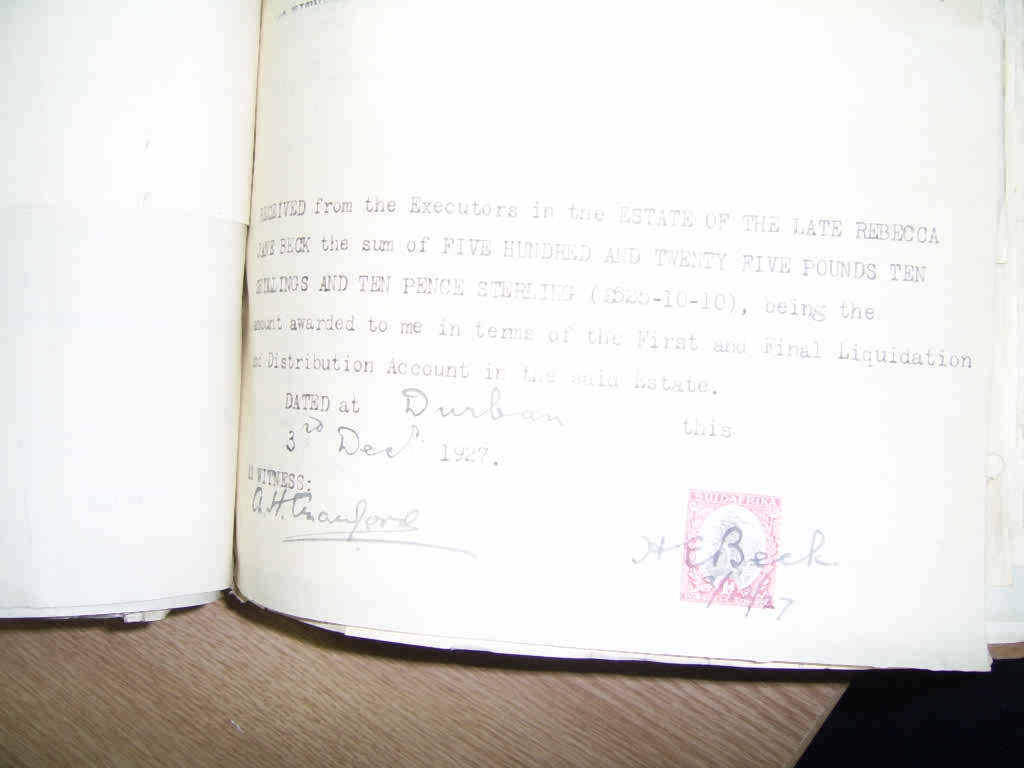 RECEIVED from the Executors in the ESTATE OF THE LATE REBECCA
JANE BECK the sum of FIVE HUNDRED AND TWENTY FIVE POUNDS TEN
SHILLINGS AND TEN PENCE STERLING (£525-10-10), being the
amount awarded to me in terms of the First and Final Liquidation
and Distribution Account in the said Estate.
DATED at Durban this
3rd Decr 1927.
AS WITNESS:
A.H. Crawford
SUIDAFRIKA
H E Beck
3/12/27